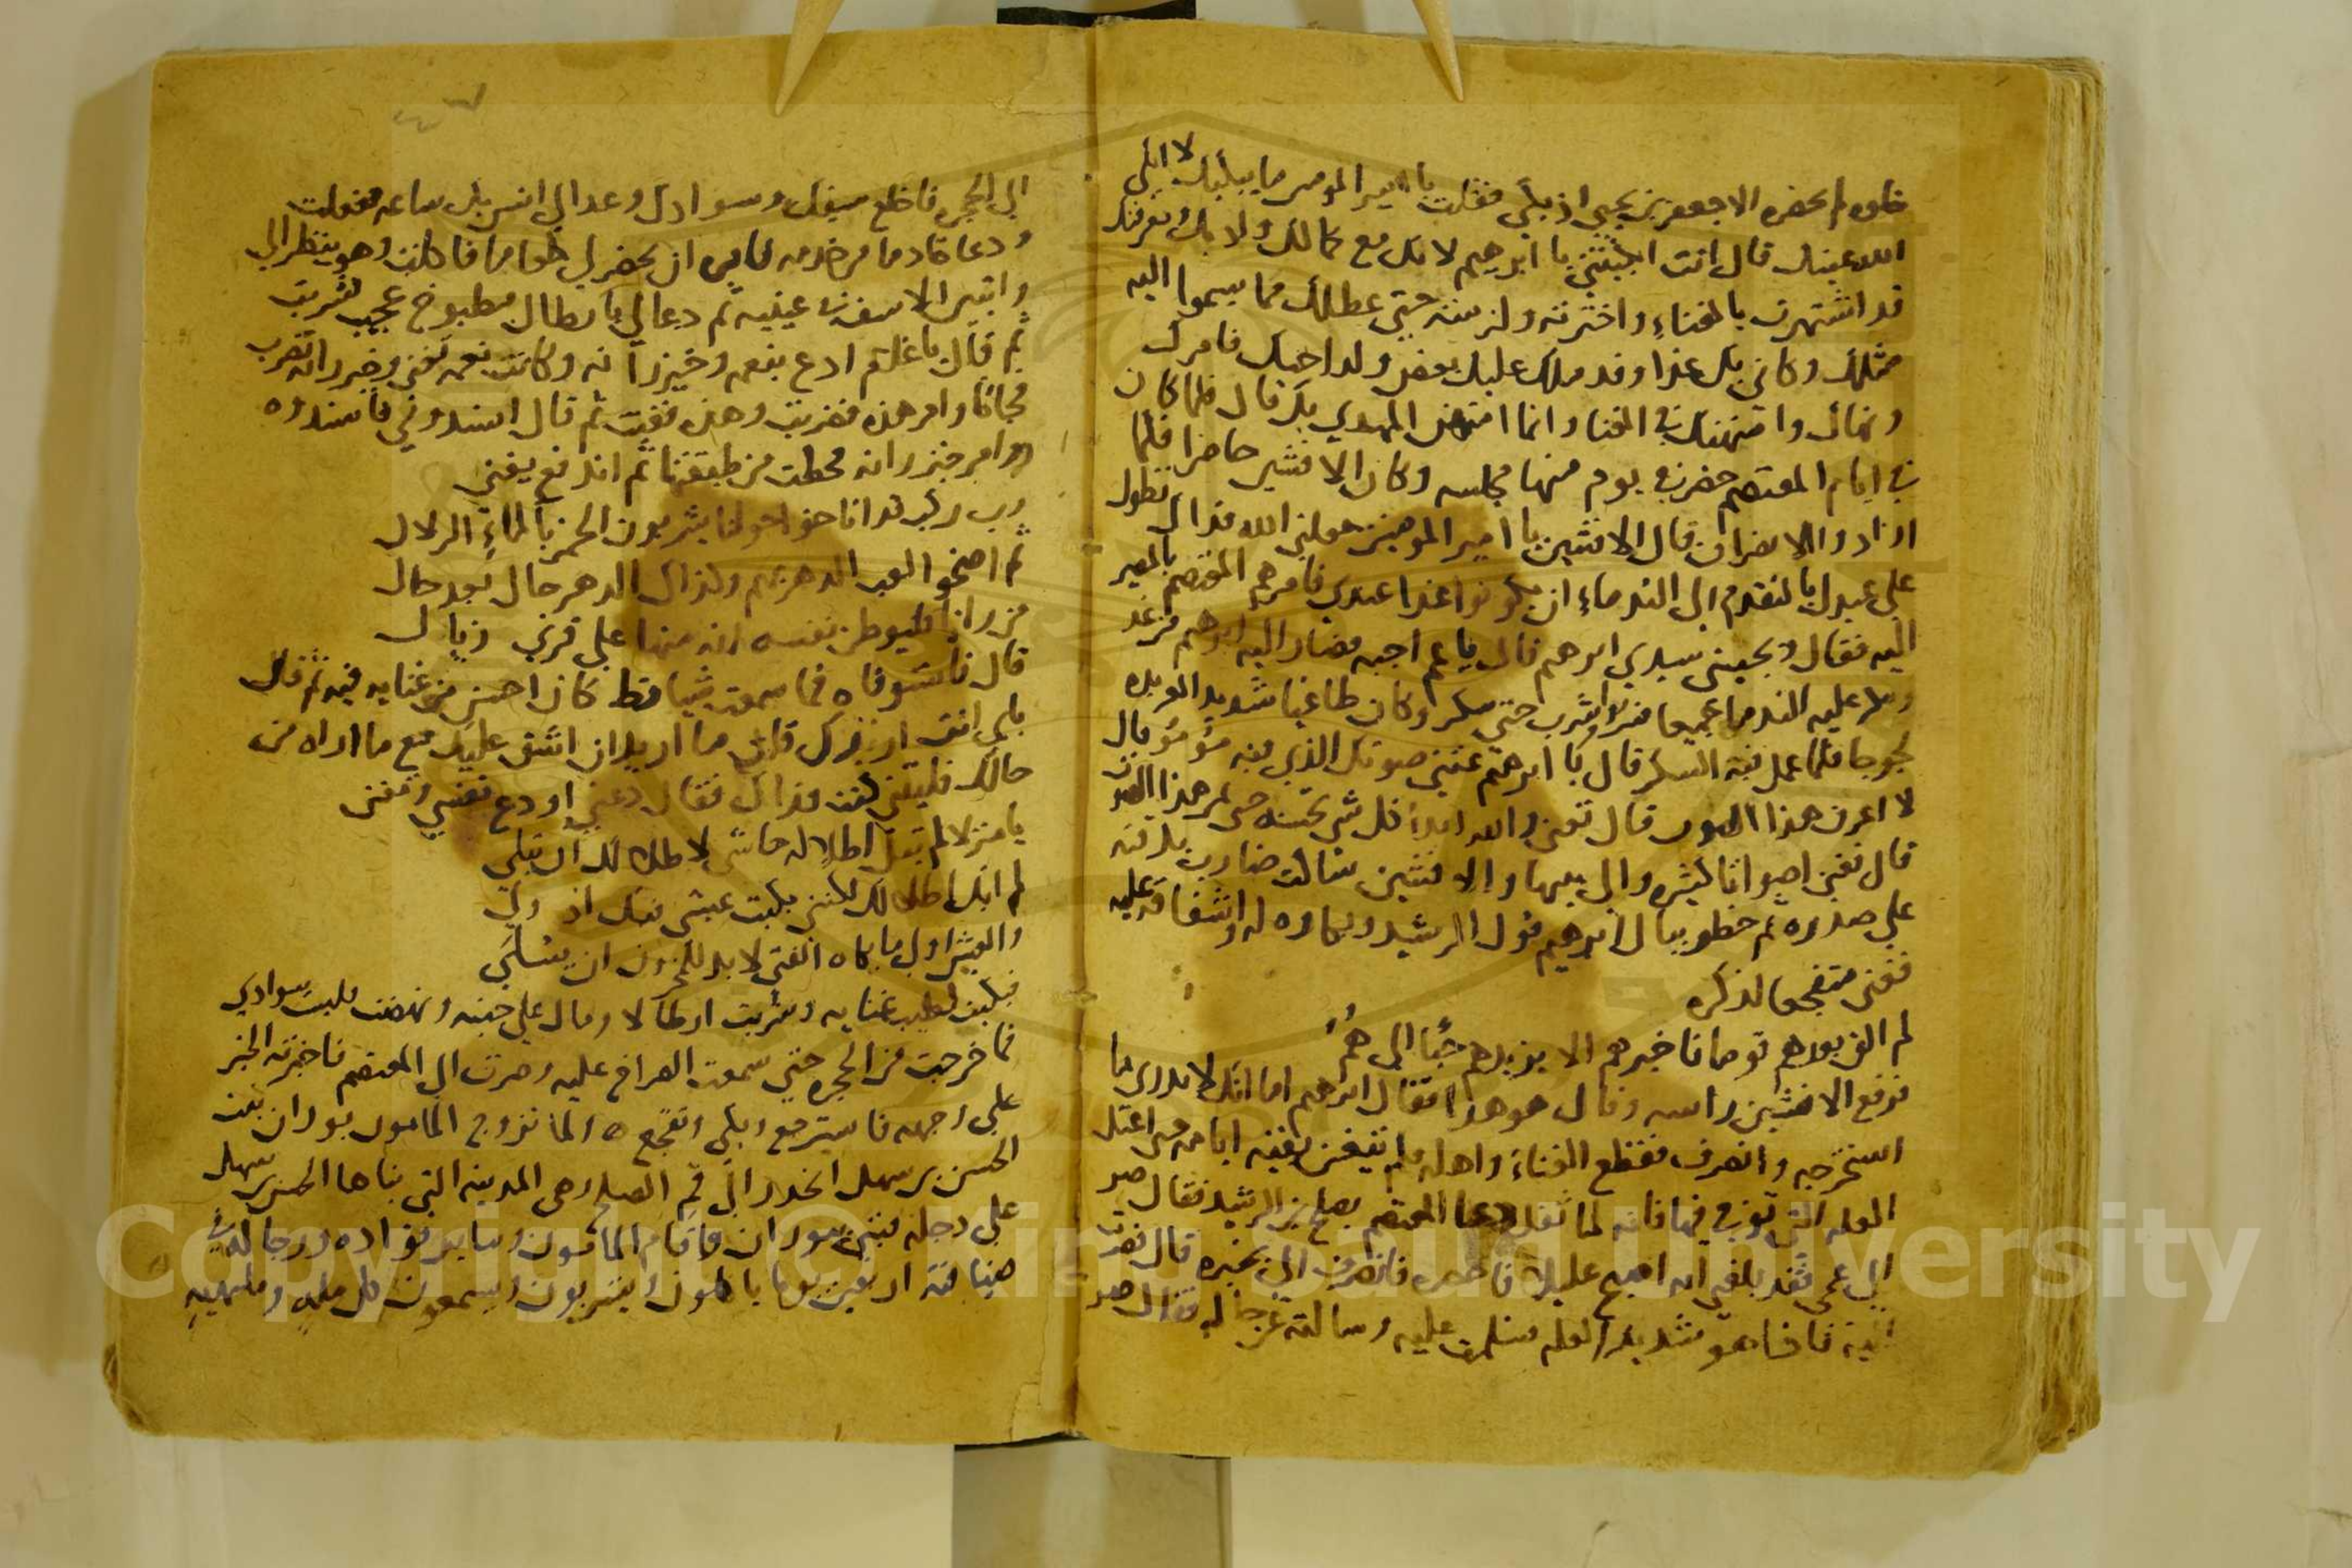 خلوه لم يحضره الا جعفر بن يحيى اذ بكى فقلت يا امير المومنين ما يبكيك لا ابكى
الله عينك قال انت ابكيتني يا ابرهيم لانك مع كمالك ولادبك ومعرفتك
قد اشتهرت بالغناء واخترته ولزمته حتى عطلك مما يسموا اليه
مثلك وكاني بك غدا وقد ملك عليك بعض ولد اخيك فامرك
ونهاك وامتهنك في الغنا وانما امتهن المهدي بك قال فلما كان
في ايام المعتصم حضر في يوم منها مجلسه وكان الافشين حاضرا فلما
ارادوا الانصراف قال الافشين يا امير المومنين جعلني الله فداك تطول
على عبدك بالتقدم الى الندماء ان يكونوا غدا عندي فامرهم المعتصم بالمصير
اليه فقال ويجيني سيدي ابرهيم قال يا عم اجبه فصار اليه ابرهيم من غد
عليه الندما جميعا فشربوا وشرب حتى سكر وكان طاغيا شديد العربده
لجوجا فلما عمل فيه السكر قال يا ابرهيم غنني صوتك الذي فيه مؤمؤ قال
لا اعرف هذا الصوت قال تغني والله ابدا كل شي تحسنه حتى يمر هذا الصوت
قال فغنى اصواتا كثيره والافشين ساكت ضارب بذقنه
على صدره ثم خطر ببال ابرهيم قول الرشيد وبكاوه له واشفاقه عليه
فغنى متفجعا لذكره
لم الق بعدهم قوما فاخبرهم الا يزيدهم حبا الى همُ
فرفع الافشين راسه وقال هو هذا فقال ابرهيم اما انك لا تدري ما
استخرجه وانصرف فقطع الغناء واهله فلم ينتفع بنفسه اياما حتى اعتل
العله التي توفي فيها فانه لما ثقل دعا المعتصم بصالح بن الرشيد فقال صر
الى عمي فقد بلغني انه اصبح عليلا فاحضره فانصرف الي بخبره قال فصرت
اليه فاذا هو شديد العله فسلمت عليه وسالته عن حاله فقال صر
الى الحجره فاخلع سيفك وسوادك وعد الي انس بك ساعه ففعلت
ودعا خادما من خدمه فامره ان يحضر لي طعاما فاكلت وهو ينظر الي
واتبين الاسف في عينيه ثم دعا لي بارطال مطبوخ عجيب فشربت
ثم قال يا غلام ادع بنعمه وخيزرانه وكانت نعمه تغني وخيزرانه تضرب
فجاتا وامر هذه فضربت وهذه فغنت ثم قال اسندوني فاسندوه
وامر خيزرانه فحطت من طبقتها ثم اندفع يغني
رب ركب قد اناخوا حولنا يشربون الخمر بالماء الزلال
ثم اضحوا لعب الدهر بهم وكذاك الدهر حال بعد حال
من رانا فليوطن نفسه انه منها على قرني زوال
قال فاستوفاه فما سمعت شيا قط كان احسن من غنايه فيه ثم قال
بابي انت ازيدك قلت ما اريد ان اشق عليك مع ما اراه من
حالك فليتني كنت فداك فقال دعني اودع نفسي وتغنى
يا منزلا لم تبل اطلاله حاشى لاطلالك ان تبلى
لم ابك اطلالك لكنني بكيت عيشي فيك اذ ولى
والعيش اولى ما بكاه الفتى لا بد للمحزون ان يسلى
فبكيت لطيب غنايه وشربت ارطالا ومال على جنبه ونهضت فلبست سوادي
فما خرجت من الحجره حتى سمعت الصراخ عليه وصرت الى المعتصم فاخبرته الخبر
على وجهه فاسترجع وبكى وتفجع ه ولما تزوج المامون بوران بنت
الحسن بن سهل انحدر الى فم الصلح وهي المدينه التي بناها الحسن بن سهل
على دجله فبنى ببوران واقام المامون وساير قواده ورجاله في
ضيافته اربعين يوما ياكلون ويشربون ويسمعون كل مله وملهيه
Copyright © King Saud University